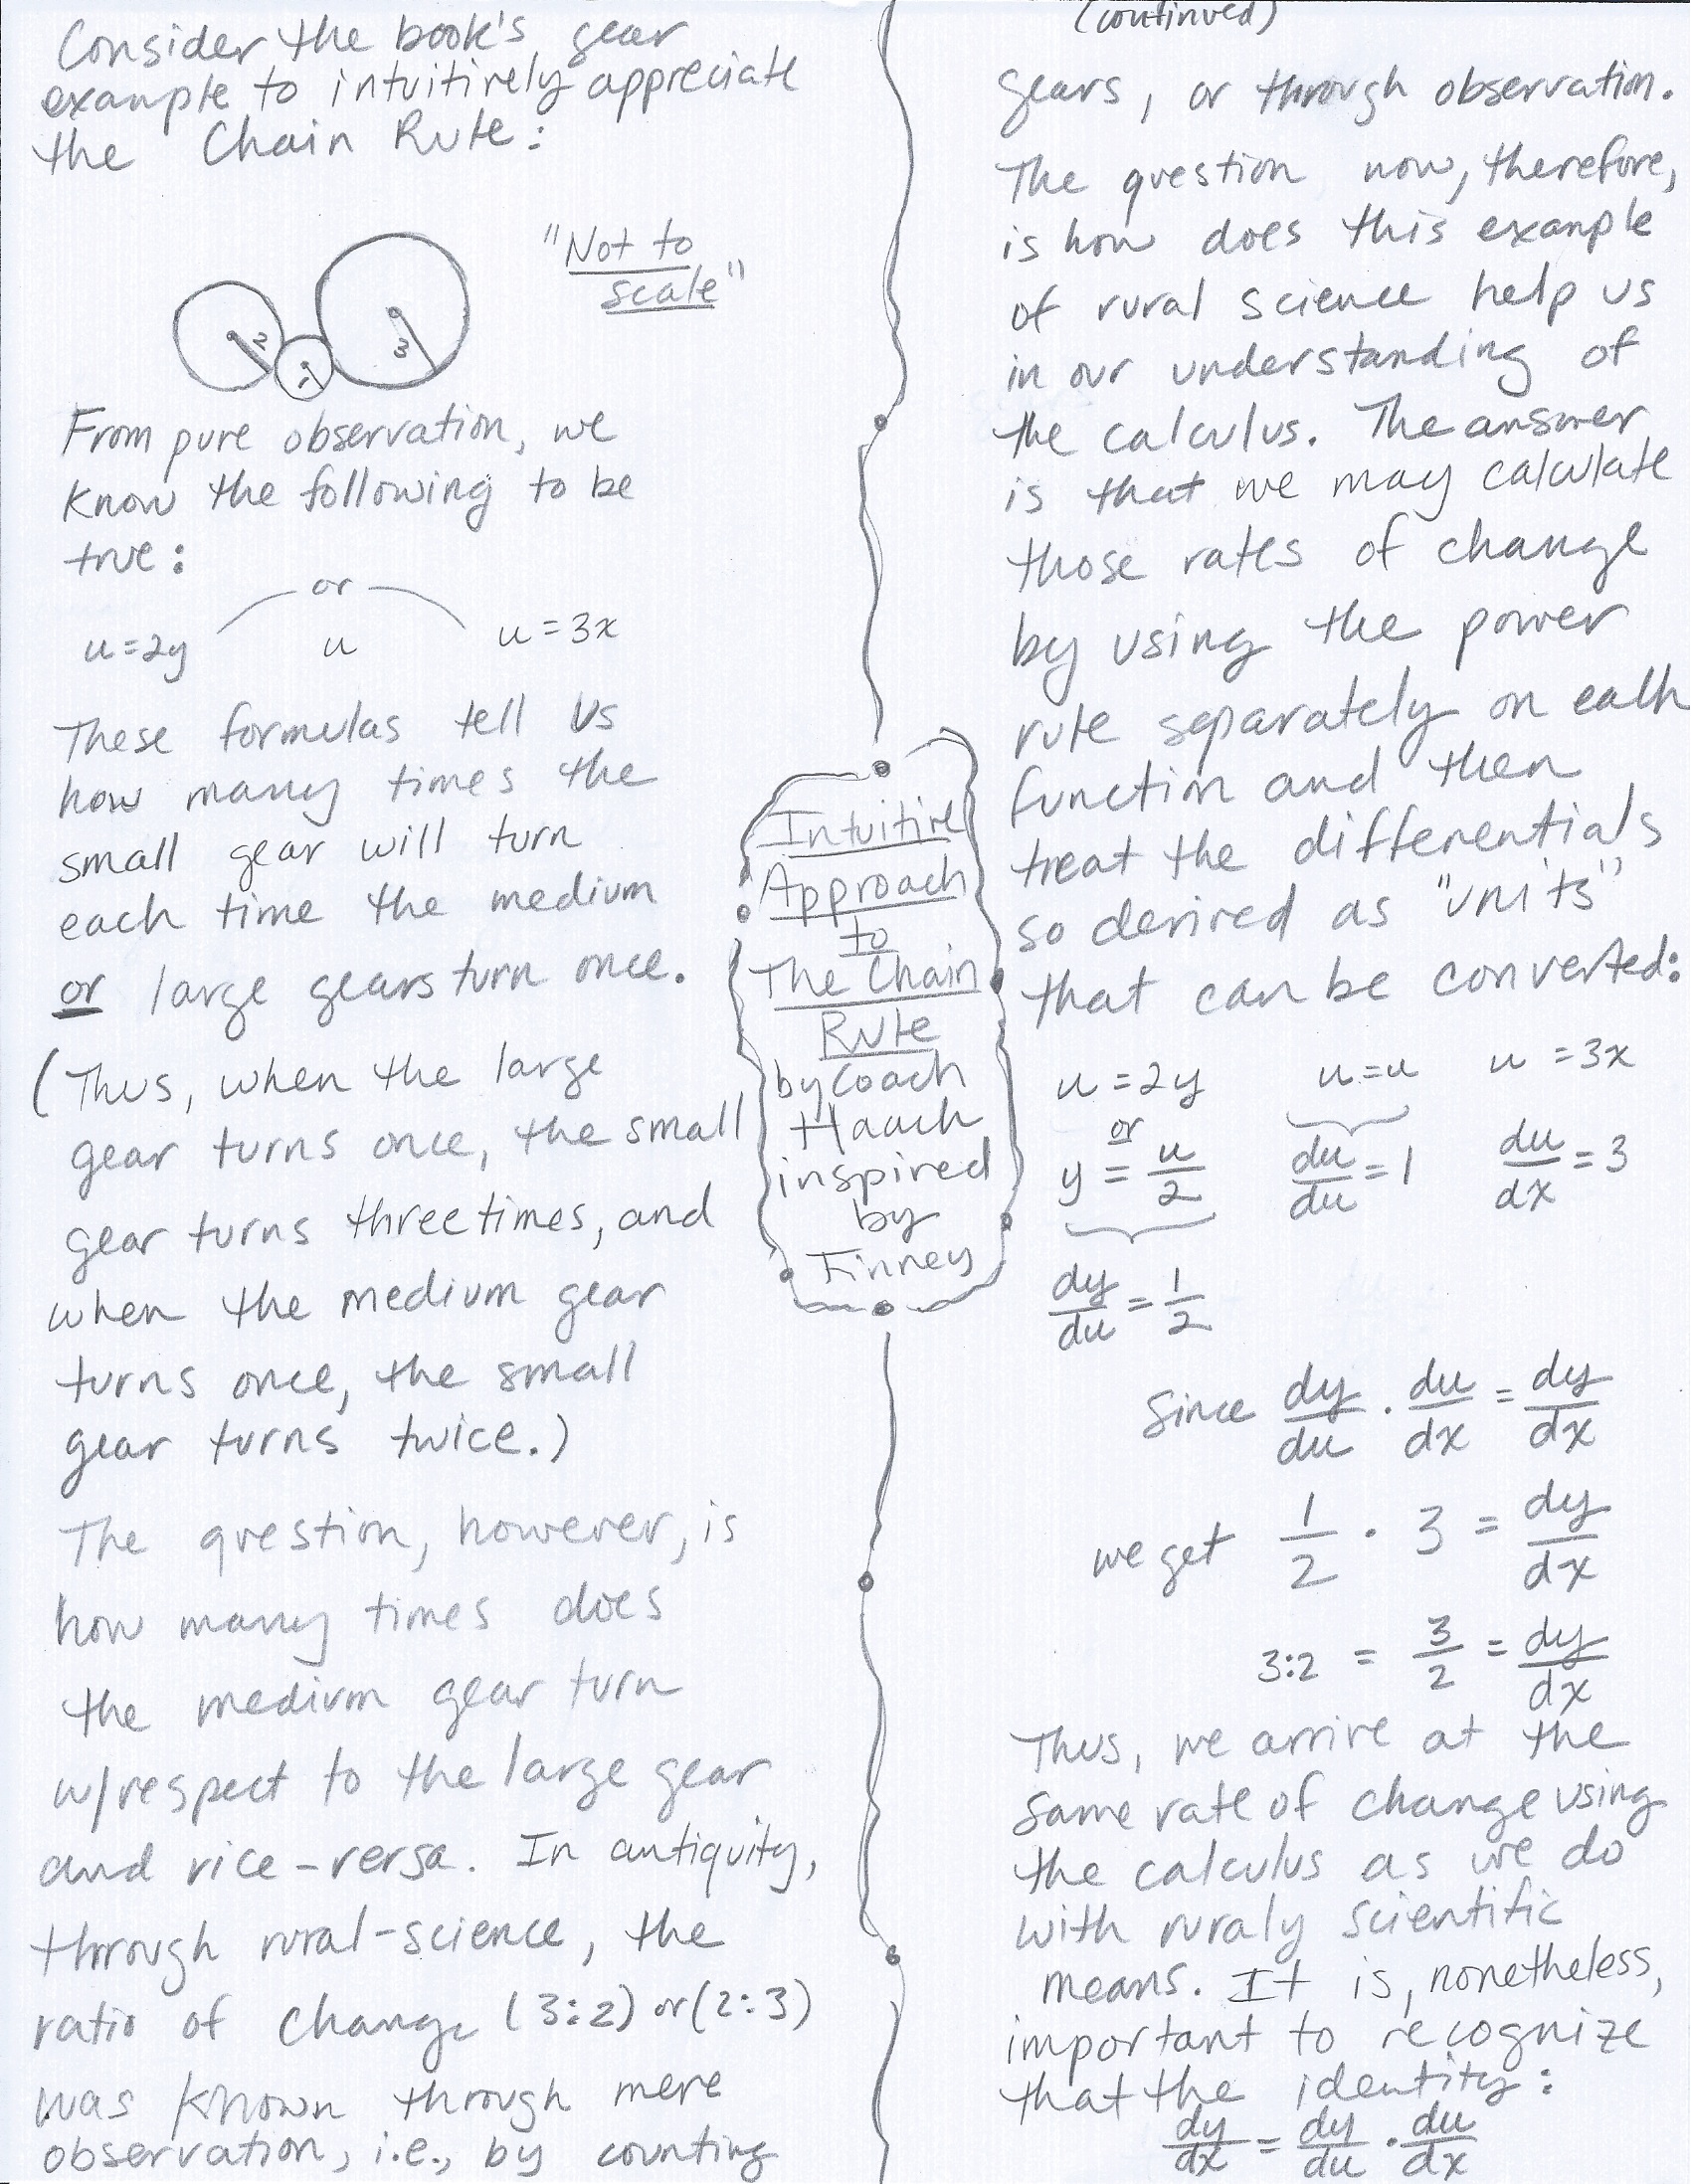 Consider the book's gear
example to intuitively appreciate
the Chain Rule:
"Not to
scale"
2
1
3
From pure observation, we
know the following to be
true:
or
u=2y u u=3x
These formulas tell us
how many times the
small gear will turn
each time the medium
or large gears turn once.
(Thus, when the large
gear turns once, the small
gear turns three times, and
when the medium gear
turns once, the small
gear turns twice.)
The question, however, is
how many times does
the medium gear turn
w/respect to the large gear
and vice-versa. In antiquity,
through rural-science, the
ratio of change (3:2) or (2:3)
was known through mere
observation, i.e., by counting
Intuitive
Approach
to
The Chain
Rule
by Coach
Haach
inspired
by
Finney
(continued)
gears, or through observation.
The question now, therefore,
is how does this example
of rural science help us
in our understanding of
the calculus. The answer
is that we may calculate
those rates of change
by using the power
rule separately on each
function and then
treat the differentials
so derived as "units"
that can be converted:
u=2y u=u u=3x
or
y = u/2 du/du = 1 du/dx = 3
dy/du = 1/2
Since dy/du · du/dx = dy/dx
we get 1/2 · 3 = dy/dx
3:2 = 3/2 = dy/dx
Thus, we arrive at the
same rate of change using
the calculus as we do
with ruraly scientific
means. It is, nonetheless,
important to recognize
that the identity:
dy/dx = dy/du · du/dx